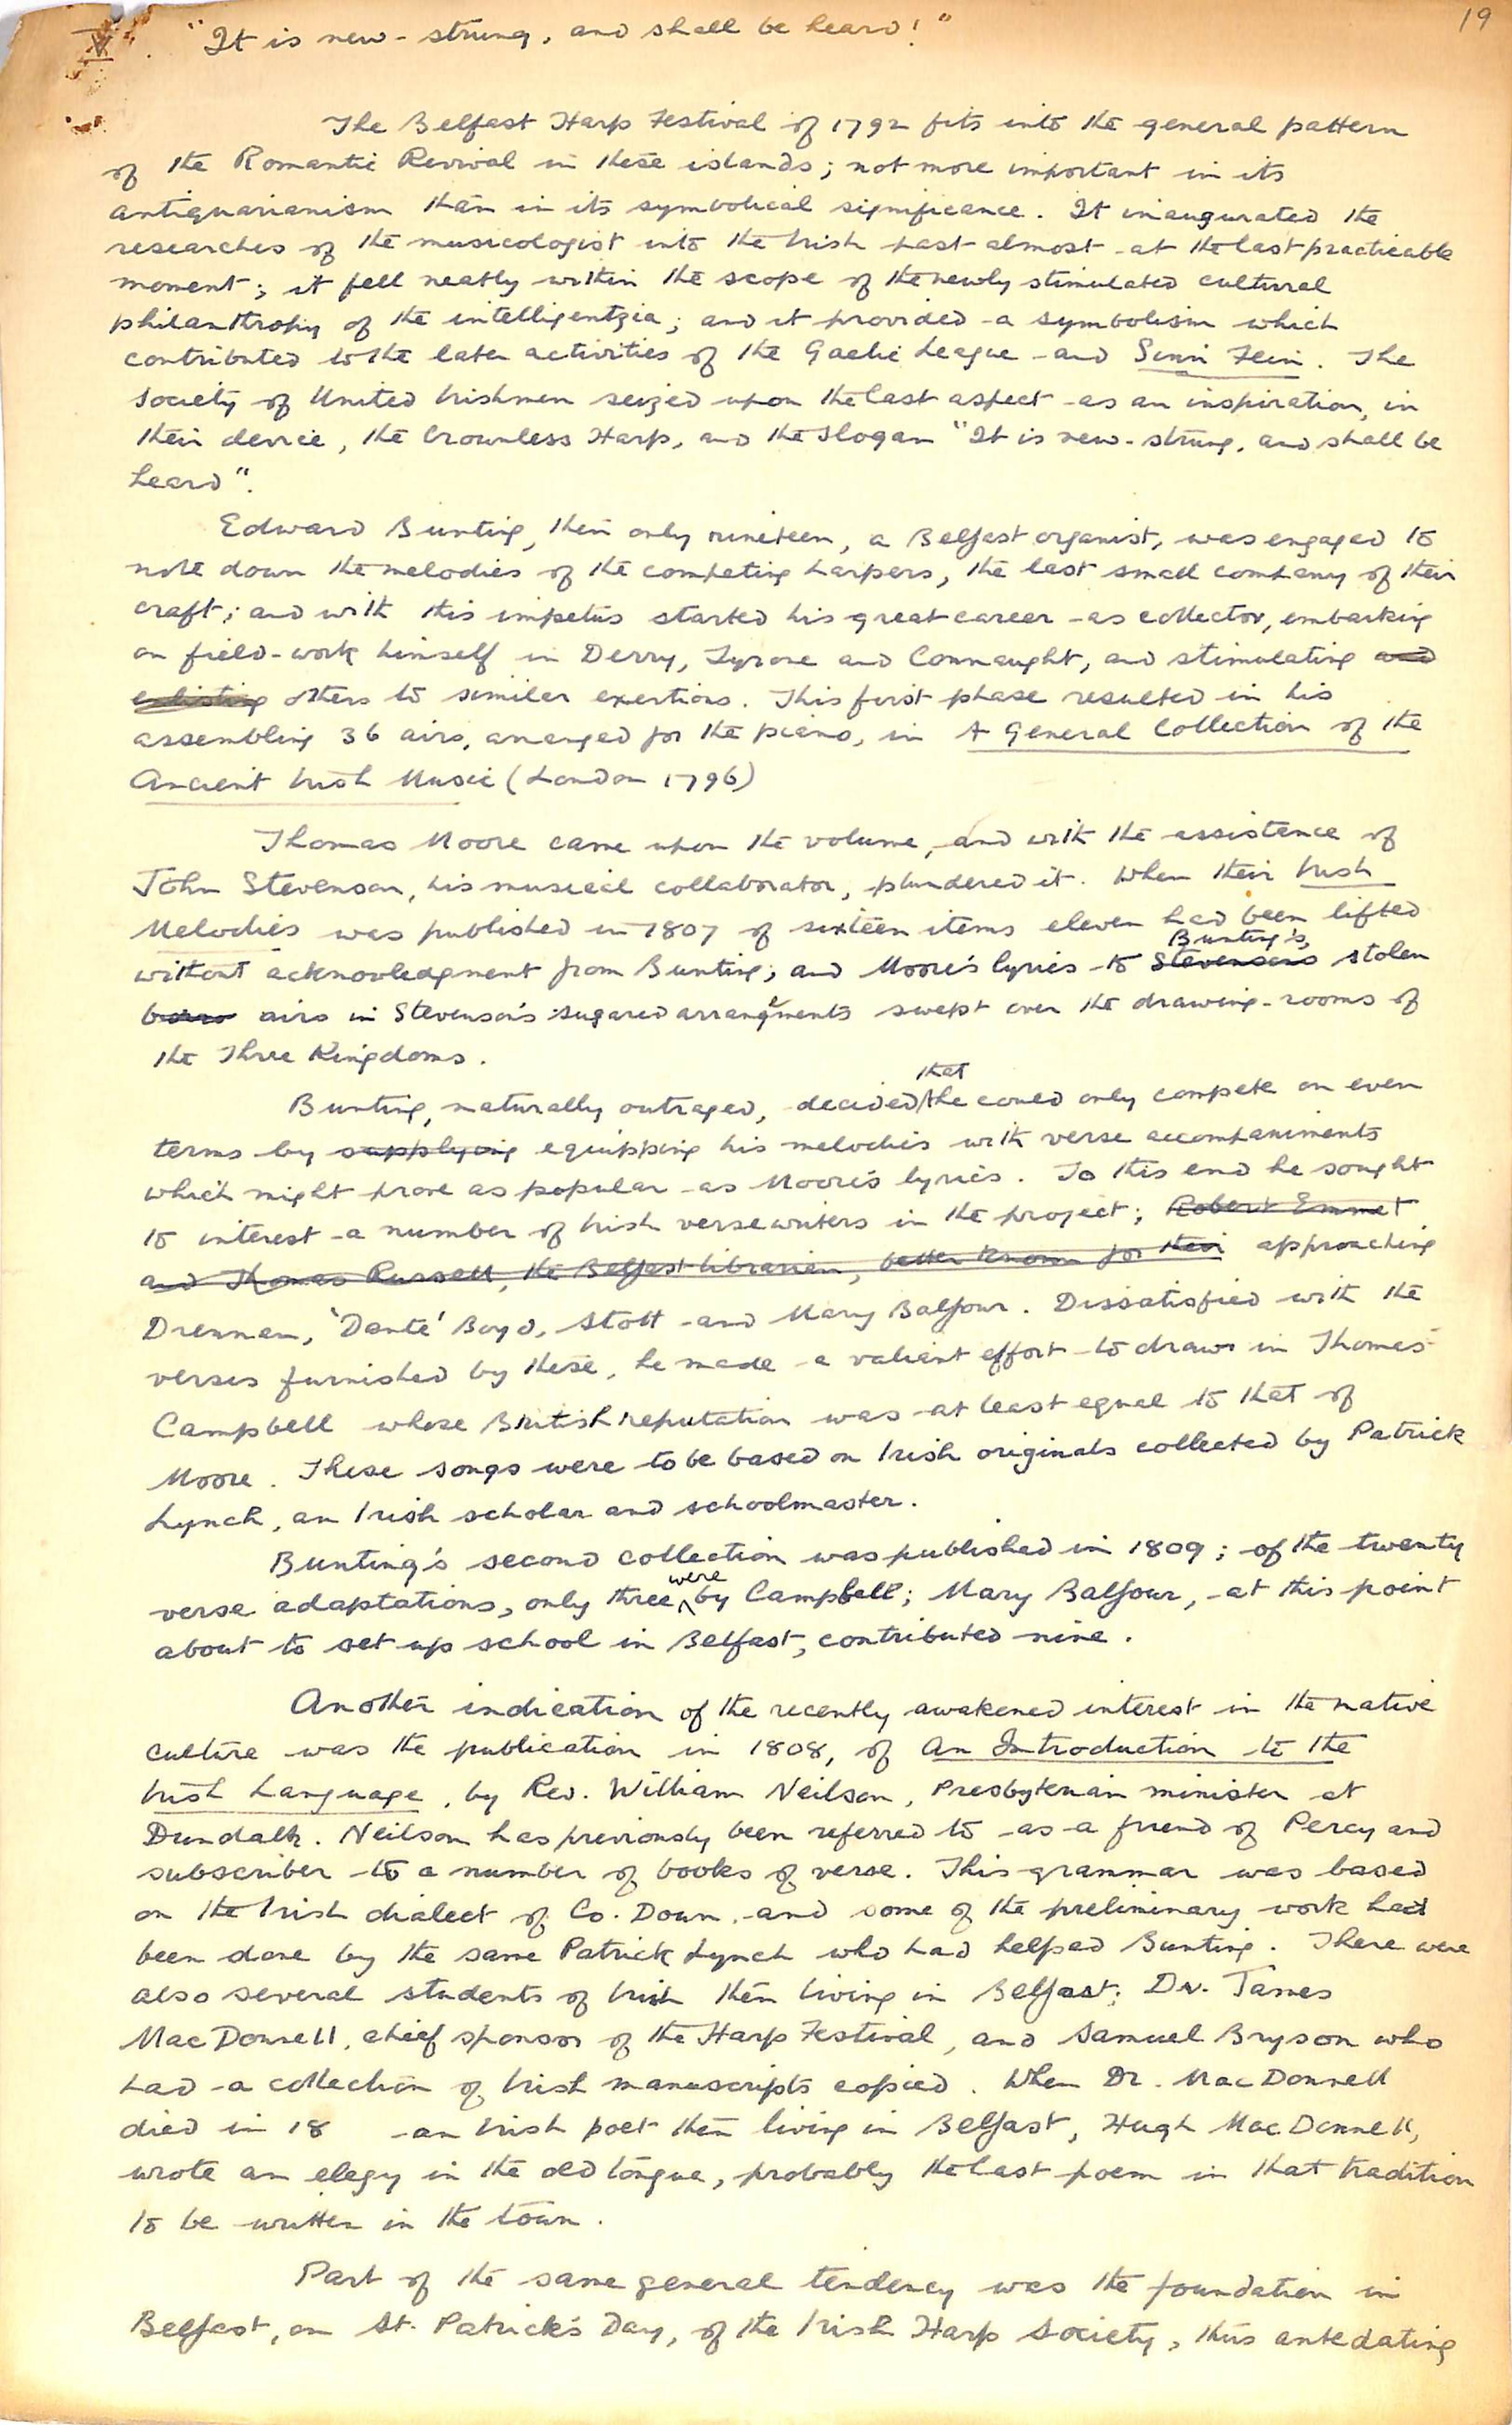 19
V. "It is new-strung, and shall be heard!"
The Belfast Harp Festival of 1792 fits into the general pattern
of the Romantic Revival in these islands; not more important in its
antiquarianism than in its symbolical significance. It inaugurated the
researches of the musicologist into the Irish past almost at the last practicable
moment; it fell neatly within the scope of the newly stimulated cultural
philanthropy of the intelligentzia; and it provided a symbolism which
contributed to the later activities of the Gaelic League and Sinn Fein. The
Society of United Irishmen seized upon the last aspect as an inspiration, in
their device, the Crownless Harp, and the slogan "It is new-strung, and shall be
heard".
Edward Bunting, then only nineteen, a Belfast organist, was engaged to
note down the melodies of the competing harpers, the last small company of their
craft; and with this impetus started his great career as collector, embarking
on field-work himself in Derry, Tyrone and Connaught, and stimulating and
enlisting others to similar exertions. This first phase resulted in his
assembling 36 airs, arranged for the piano, in A General Collection of the
Ancient Irish Music (London 1796)
Thomas Moore came upon the volume, and with the assistance of
John Stevenson, his musical collaborator, plundered it. When their Irish
Melodies was published in 1807 of sixteen items eleven had been lifted
Bunting's
without acknowledgment from Bunting; and Moore's lyrics to Stevenson's stolen
airs in Stevenson's sugared arrangements swept over the drawing-rooms of
the Three Kingdoms.
that
Bunting, naturally outraged, decided he could only compete on even
terms by supplying equipping his melodies with verse accompaniments
which might prove as popular as Moore's lyrics. To this end he sought
to interest a number of Irish verse writers in the project; Robert Emmet
and Thomas Russell, the Belfast librarian, better known for their approaching
Drennan, 'Dante' Boyd, Stott and Mary Balfour. Dissatisfied with the
verses furnished by these, he made a valiant effort to draw in Thomas
Campbell whose British reputation was at least equal to that of
Moore. These songs were to be based on Irish originals collected by Patrick
Lynch, an Irish scholar and schoolmaster.
Bunting's second collection was published in 1809; of the twenty
were
verse adaptations, only three by Campbell; Mary Balfour, at this point
about to set up school in Belfast, contributed nine.
Another indication of the recently awakened interest in the native
culture was the publication in 1808, of An Introduction to the
Irish Language, by Rev. William Neilson, Presbyterian minister at
Dundalk. Neilson has previously been referred to as a friend of Percy and
subscriber to a number of books of verse. This grammar was based
on the Irish dialect of Co. Down, and some of the preliminary work had
been done by the same Patrick Lynch who had helped Bunting. There were
also several students of Irish then living in Belfast; Dr. James
MacDonnell, chief sponsor of the Harp Festival, and Samuel Bryson who
had a collection of Irish manuscripts copied. When Dr. MacDonnell
died in 18 an Irish poet then living in Belfast, Hugh MacDonnell,
wrote an elegy in the old tongue, probably the last poem in that tradition
to be written in the town.
Part of the same general tendency was the foundation in
Belfast, on St. Patrick's Day, of the Irish Harp Society, thus antedating